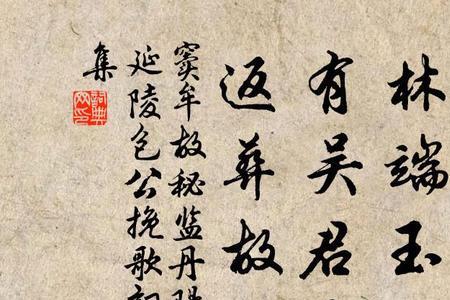 林端玉
有吴君
返葬故
窦牟故秘监丹阳
延陵包公挽歌词
集